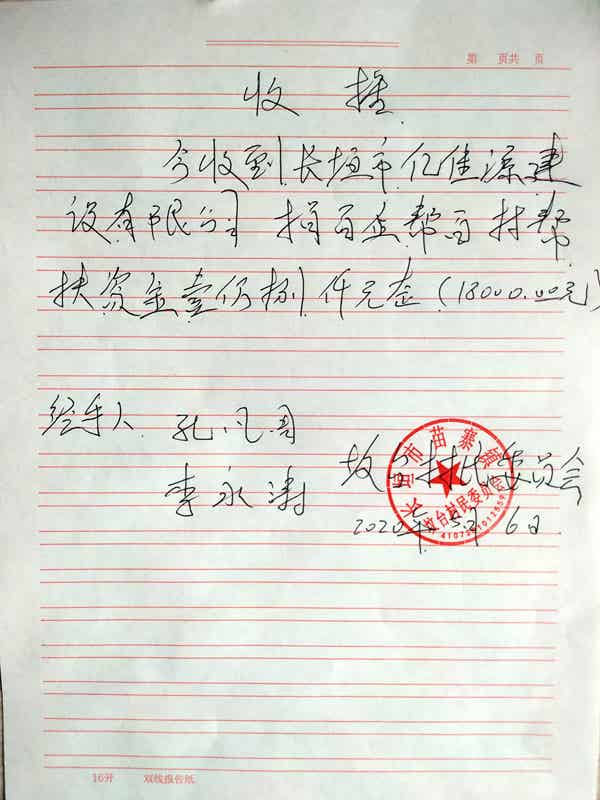 第 页共 页
收 据
今收到长垣市亿佳源建
设有限公司 捐百企帮百村帮
扶资金壹仟捌仟元整（18000.00元）
经手人 孔凡周
李永涛
坡台村民委员会
2020年5月6日
长垣市苗寨镇
坡台村民委员会
16开 双线报告纸